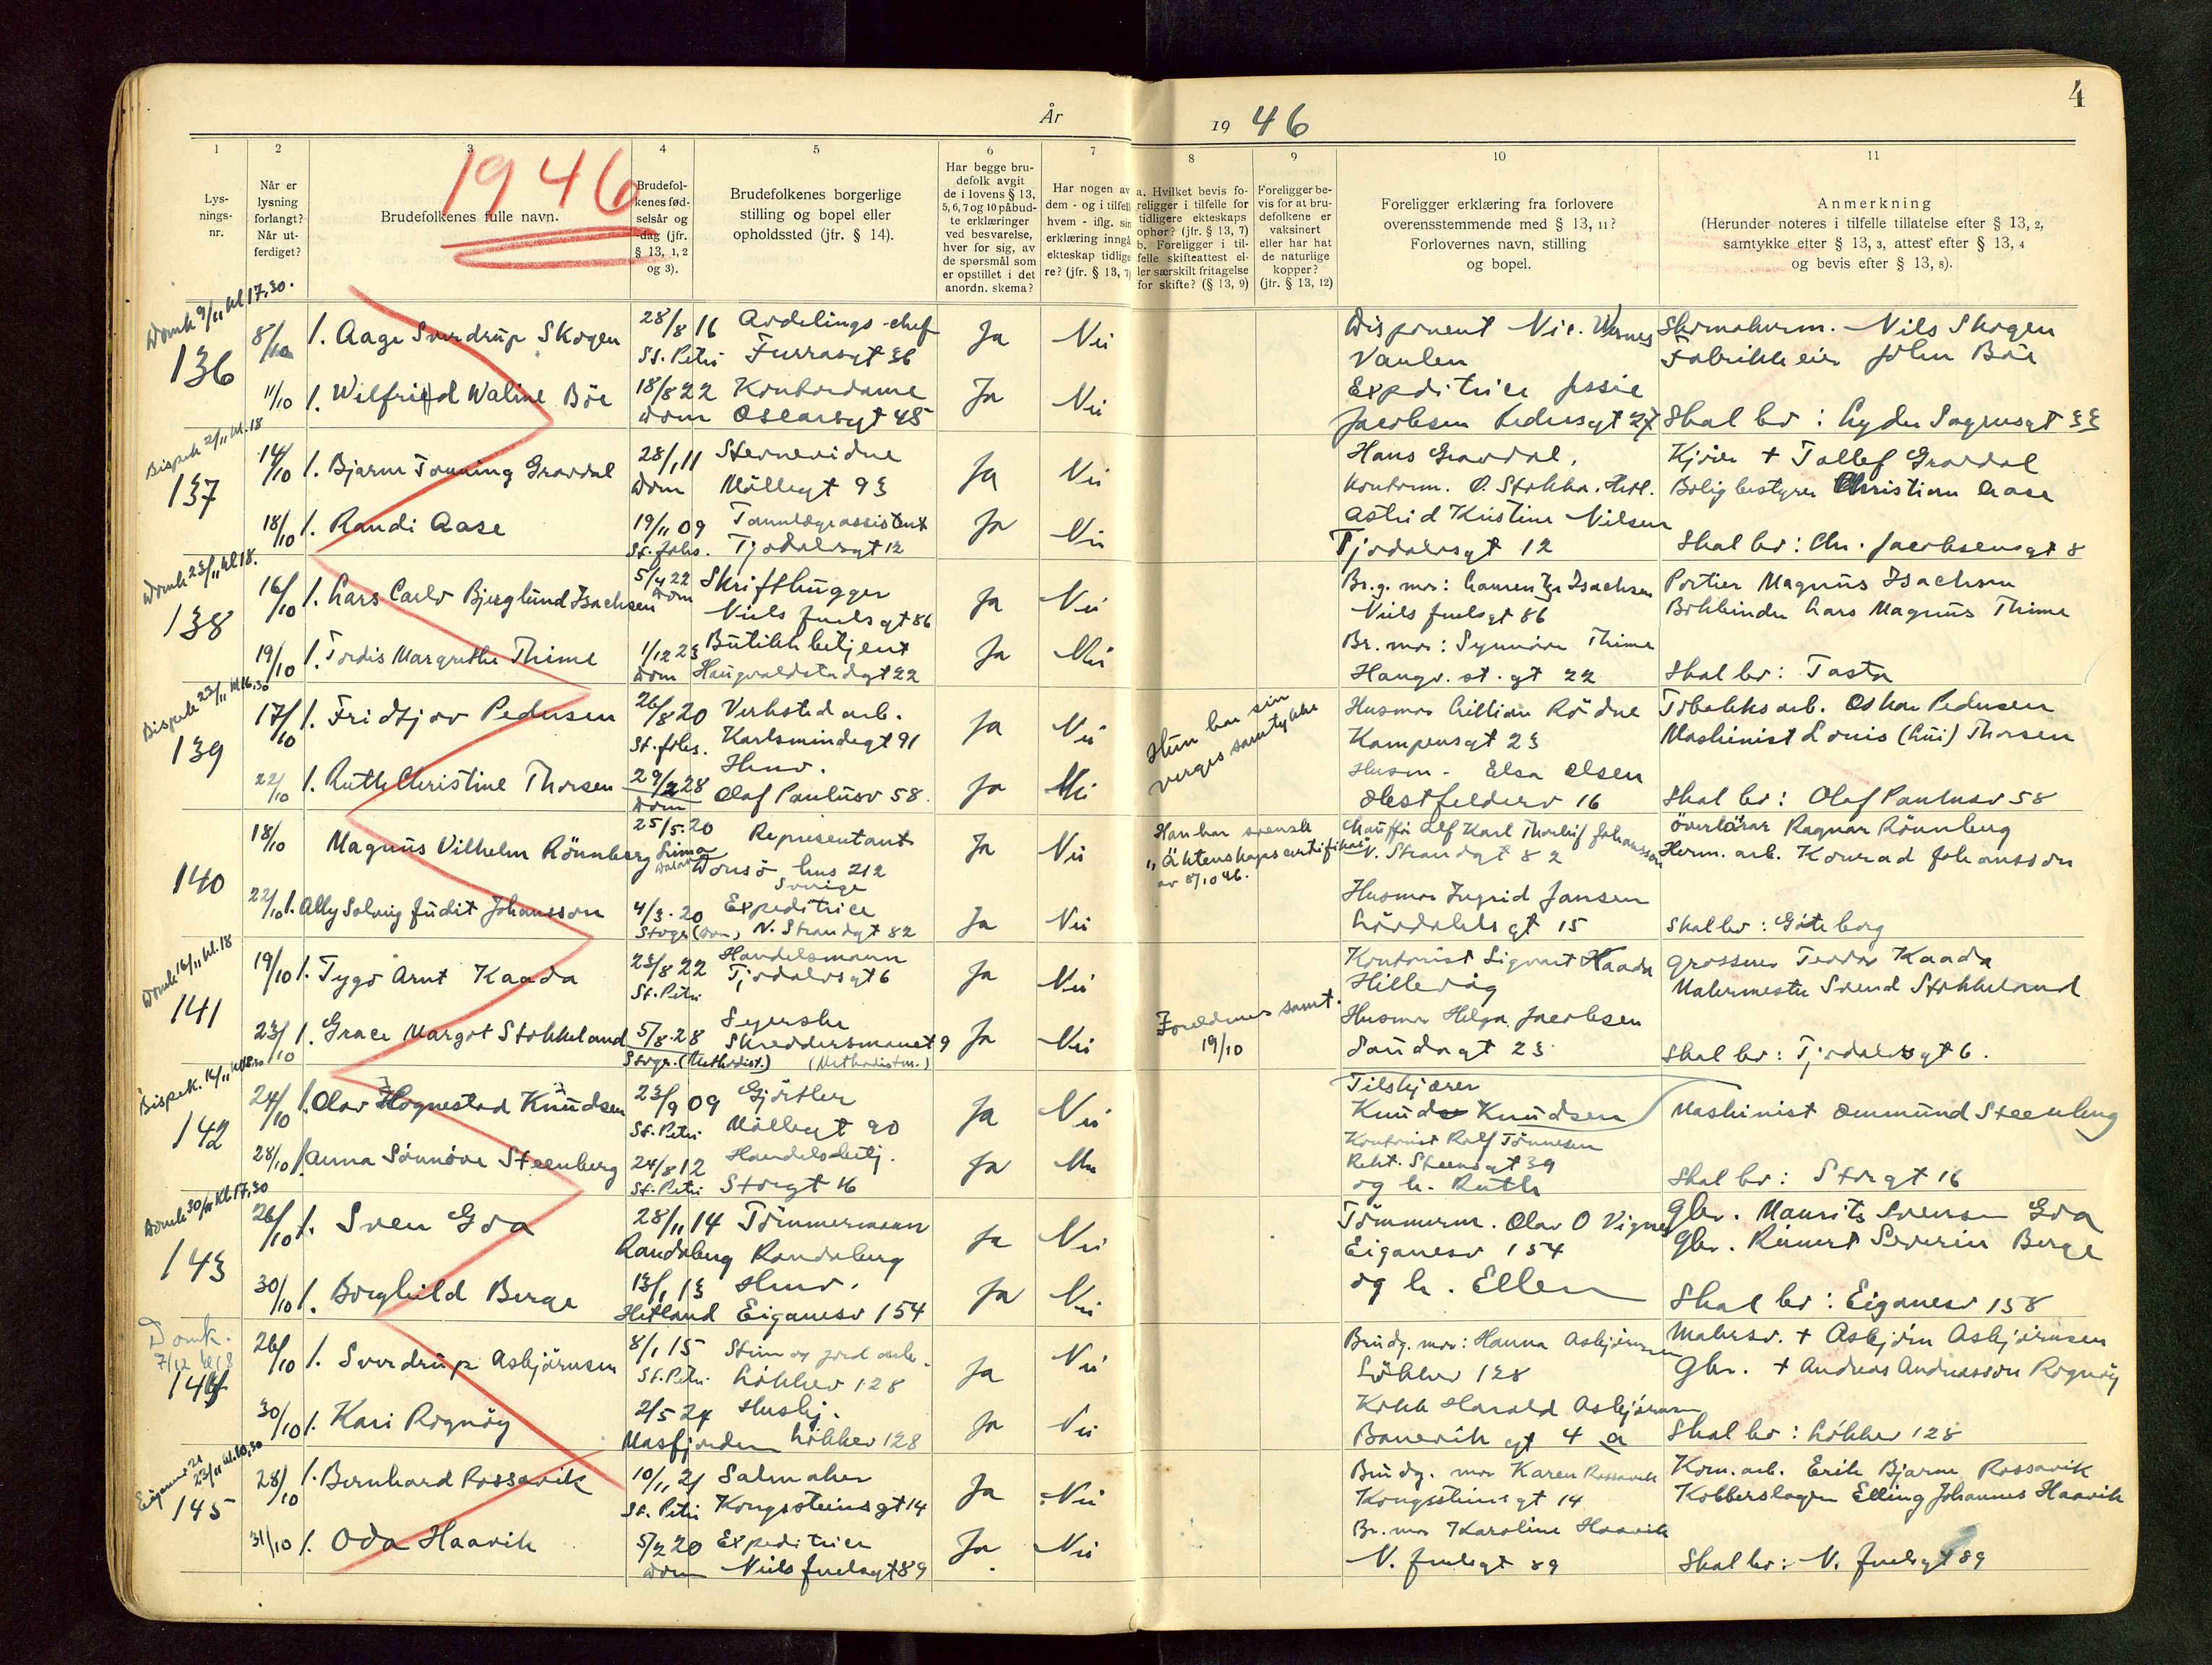 År 19 46
4
1 2 3 4 5 6 7 8 9 10 11
Lys-
nings-
nr.
Når er
lysning
forlangt?
Når ut-
ferdiget?
1946
Brudefolkenes fulle navn.
Brudefol-
kenes fød-
selsår og
-dag (jfr.
§ 13, 1, 2
og 3).
Brudefolkenes borgerlige
stilling og bopel eller
opholdssted (jfr. § 14).
Har begge bru-
defolk avgit
de i lovens § 13,
5, 6, 7 og 10 påbud-
te erklæringer
ved besvarelse,
hver for sig, av
de spørsmål som
er opstillet i det
anordn. skema?
Har nogen av
dem - og i tilfelle
hvem - iflg. sin
erklæring inngå
ekteskap tidlige
re? (jfr. § 13, 7)
a. Hvilket bevis fo-
religger i tilfelle for
tidligere ekteskaps
ophør? (jfr. § 13, 7)
b. Foreligger i til-
felle skifteattest el-
ler særskilt fritagelse
for skifte? (§ 13, 9)
Foreligger be-
vis for at bru-
defolkene er
vaksinert
eller har hat
de naturlige
kopper?
(jfr. § 13, 12)
Foreligger erklæring fra forlovere
overensstemmende med § 13, 11?
Forlovernes navn, stilling
og bopel.
Anmerkning
(Herunder noteres i tilfelle tillatelse efter § 13, 2,
samtykke efter § 13, 3, attest efter § 13, 4
og bevis efter § 13, 8).
Domk 9/11 kl 17.30.
136
8/10 1. Aage Sverdrup Skogen 28/8 16 Avdelings-chef Ja Nei
St. Petri Furrasgt 36
Disponent Nic. Wernes
Vaulen
Skomakerm. Nils Skogen
Fabrikkeier John Böe
11/10 1. Wilfried Waline Böe 18/8 22 Kontordame Ja Nei
Dom Oscarsgt 45
Expeditrice Jessie
Jacobsen Pedersgt 27
Skal bo: Lyder Sagensgt 33
Bispek 2/11 kl. 18
137
14/10 1. Bjarne Tonning Gravdal 28/1 11 Stevneridne Ja Nei
Dom Möllegt 93
Hans Gravdal,
Kontorm. Ö. Stokka. Hetl.
Kjörer + Tollef Gravdal
Boligbestyrer Christian Aase
18/10 1. Randi Aase 19/11 09 Tannlegeassistent Ja Nei
St. Johs. Tjodolvsgt 12
Astrid Kristine Nilsen
Tjodolvsgt 12
Skal bo: Chr. Jacobsensgt 8
Domk 23/11 kl 18.
138
16/10 1. Lars Carlo Bjerglund Isachsen 5/4 22 Skrifthugger Ja Nei
Dom Niels Juelsgt 86
Br.g. mor: Laurentze Isachsen
Niels Juelsgt 86
Portier Magnus Isachsen
Bokbinder Lars Magnus Thime
19/10 1. Tordis Margrethe Thime 1/12 23 Butikkbetjent Ja Nei
Dom Haugvaldstadgt 22
Br. mor: Synnöve Thime
Haugv. st. gt 22
Skal bo: Tasta
Bispek 23/11 kl 16.30
139
17/10 1. Fridtjov Pedersen 26/8 20 Verksted arb. Ja Nei
St. Johs. Karlsmindegt 91
Hun har sin
verges samtykke
Husmor Lillian Rödne
Kampensgt 23
Tobakksarb. Oskar Pedersen
Maskinist Louis (Lui) Thorsen
22/10 1. Ruth Christine Thorsen 29/2 28 Husv. Ja Nei
Dom Olaf Paulusv 58.
Husm. Elsa Olsen
Skal bo: Olaf Paulusv 58
140
18/10 Magnus Vilhelm Rönnberg 25/5.20 Representant Ja Nei
Lima Donsö hus 212
Sverige
Han har svensk
"Äktenskapscertifikat
av 8/10 46.
Chauffør Alf Karl Thorleif Johansson
N. Strandgt 82
Överlärar Ragnar Rönnberg
Herm. arb. Konrad Johansson
22/10 1. Ally Solveig Judit Johansson 4/3.20 Expeditrice Ja Nei
Stvgr (Dom) N. Strandgt 82
Husmor Ingrid Jansen
Lövdahlsgt 15
Skal bo: Göteborg
Domk 16/11 kl. 18
141
19/10 1. Tygo Arnt Kaada 23/8 22 Handelsmann Ja Nei
St. Petri Tjodolvsgt 6
Kontorist Sigvart Kaada
Hillevåg
Grosserer Teodor Kaada
Malermester Svend Stokkeland
23/10 1. Grace Margot Stokkeland 5/8.28 Syerske Ja Nei
Skreddersmauet 9
Stvgr. (Methodist.) (Methodistm.)
Foreldrenes samt.
19/10
Husmor Helga Jacobsen
Sandagt 23
Skal bo: Tjodolvsgt 6.
Bispek. 16/11
142
24/10 1. Olav Hognestad Knudsen 23/9 09 Gjörtler Ja Nei
St. Petri Möllegt 90
Tilskjærer
Knud Knudsen
Maskinist Ommund Steenberg
28/10 1. Anna Sönnöve Steenberg 24/8 12 Handelsbetj. Ja Nei
St. Petri Storgt 16
Kontorist Rolf Tönnesen
Rekt. Steensgt 39
og h. Ruth
Skal bo: Storgt 16
Domk 30/11 kl 17.30
143
26/10 1. Sven Goa 28/11 14 Tömmermann Ja Nei
Randaberg Randaberg
Tömmerm. Olav O Vignes
Eiganesv 154
og h. Ellen
Gbr. Maurits Svensen Goa
Gbr. Reinert Severin Berge
30/10 1. Borghild Berge 13/1 13 Husv. Ja Nei
Hetland Eiganesv 154
Skal bo: Eiganesv 158
Domk.
7/12 kl 18
144
26/10 1. Sverdrup Asbjörnsen 8/1 15 Stein og jord arb. Ja Nei
St. Petri Lökkev 128
Brudg. mor: Hanna Asbjörnsen
Lökkev 128
Malersv. + Asbjörn Asbjörnsen
Gbr. + Andreas Andreasson Rognöy
30/10 1. Kari Rognöy 2/5 24 Hushj. Ja Nei
Masfjorden Lökkev 128
Kokk Harald Asbjörnsen
Banevik gt 4 a
Skal bo: Lökkev 128
Eiganes 23/11 kl.
145
28/10 1. Bernhard Rossavik 10/11 21 Salmaker Ja Nei
St. Petri Kongsteinsgt 14
Brudg. mor Karen Rossavik
Kongsteinsgt 14
Kom. arb. Erik Bjarne Rossavik
Kobberslager Elling Johannes Haavik
31/10 1. Oda Haavik 5/2 20 Expeditrice Ja Nei
Dom Niels Juelsgt 89
Br. mor Karoline Haavik
N. Juelsgt 89
Skal bo: N. Juelsgt 89